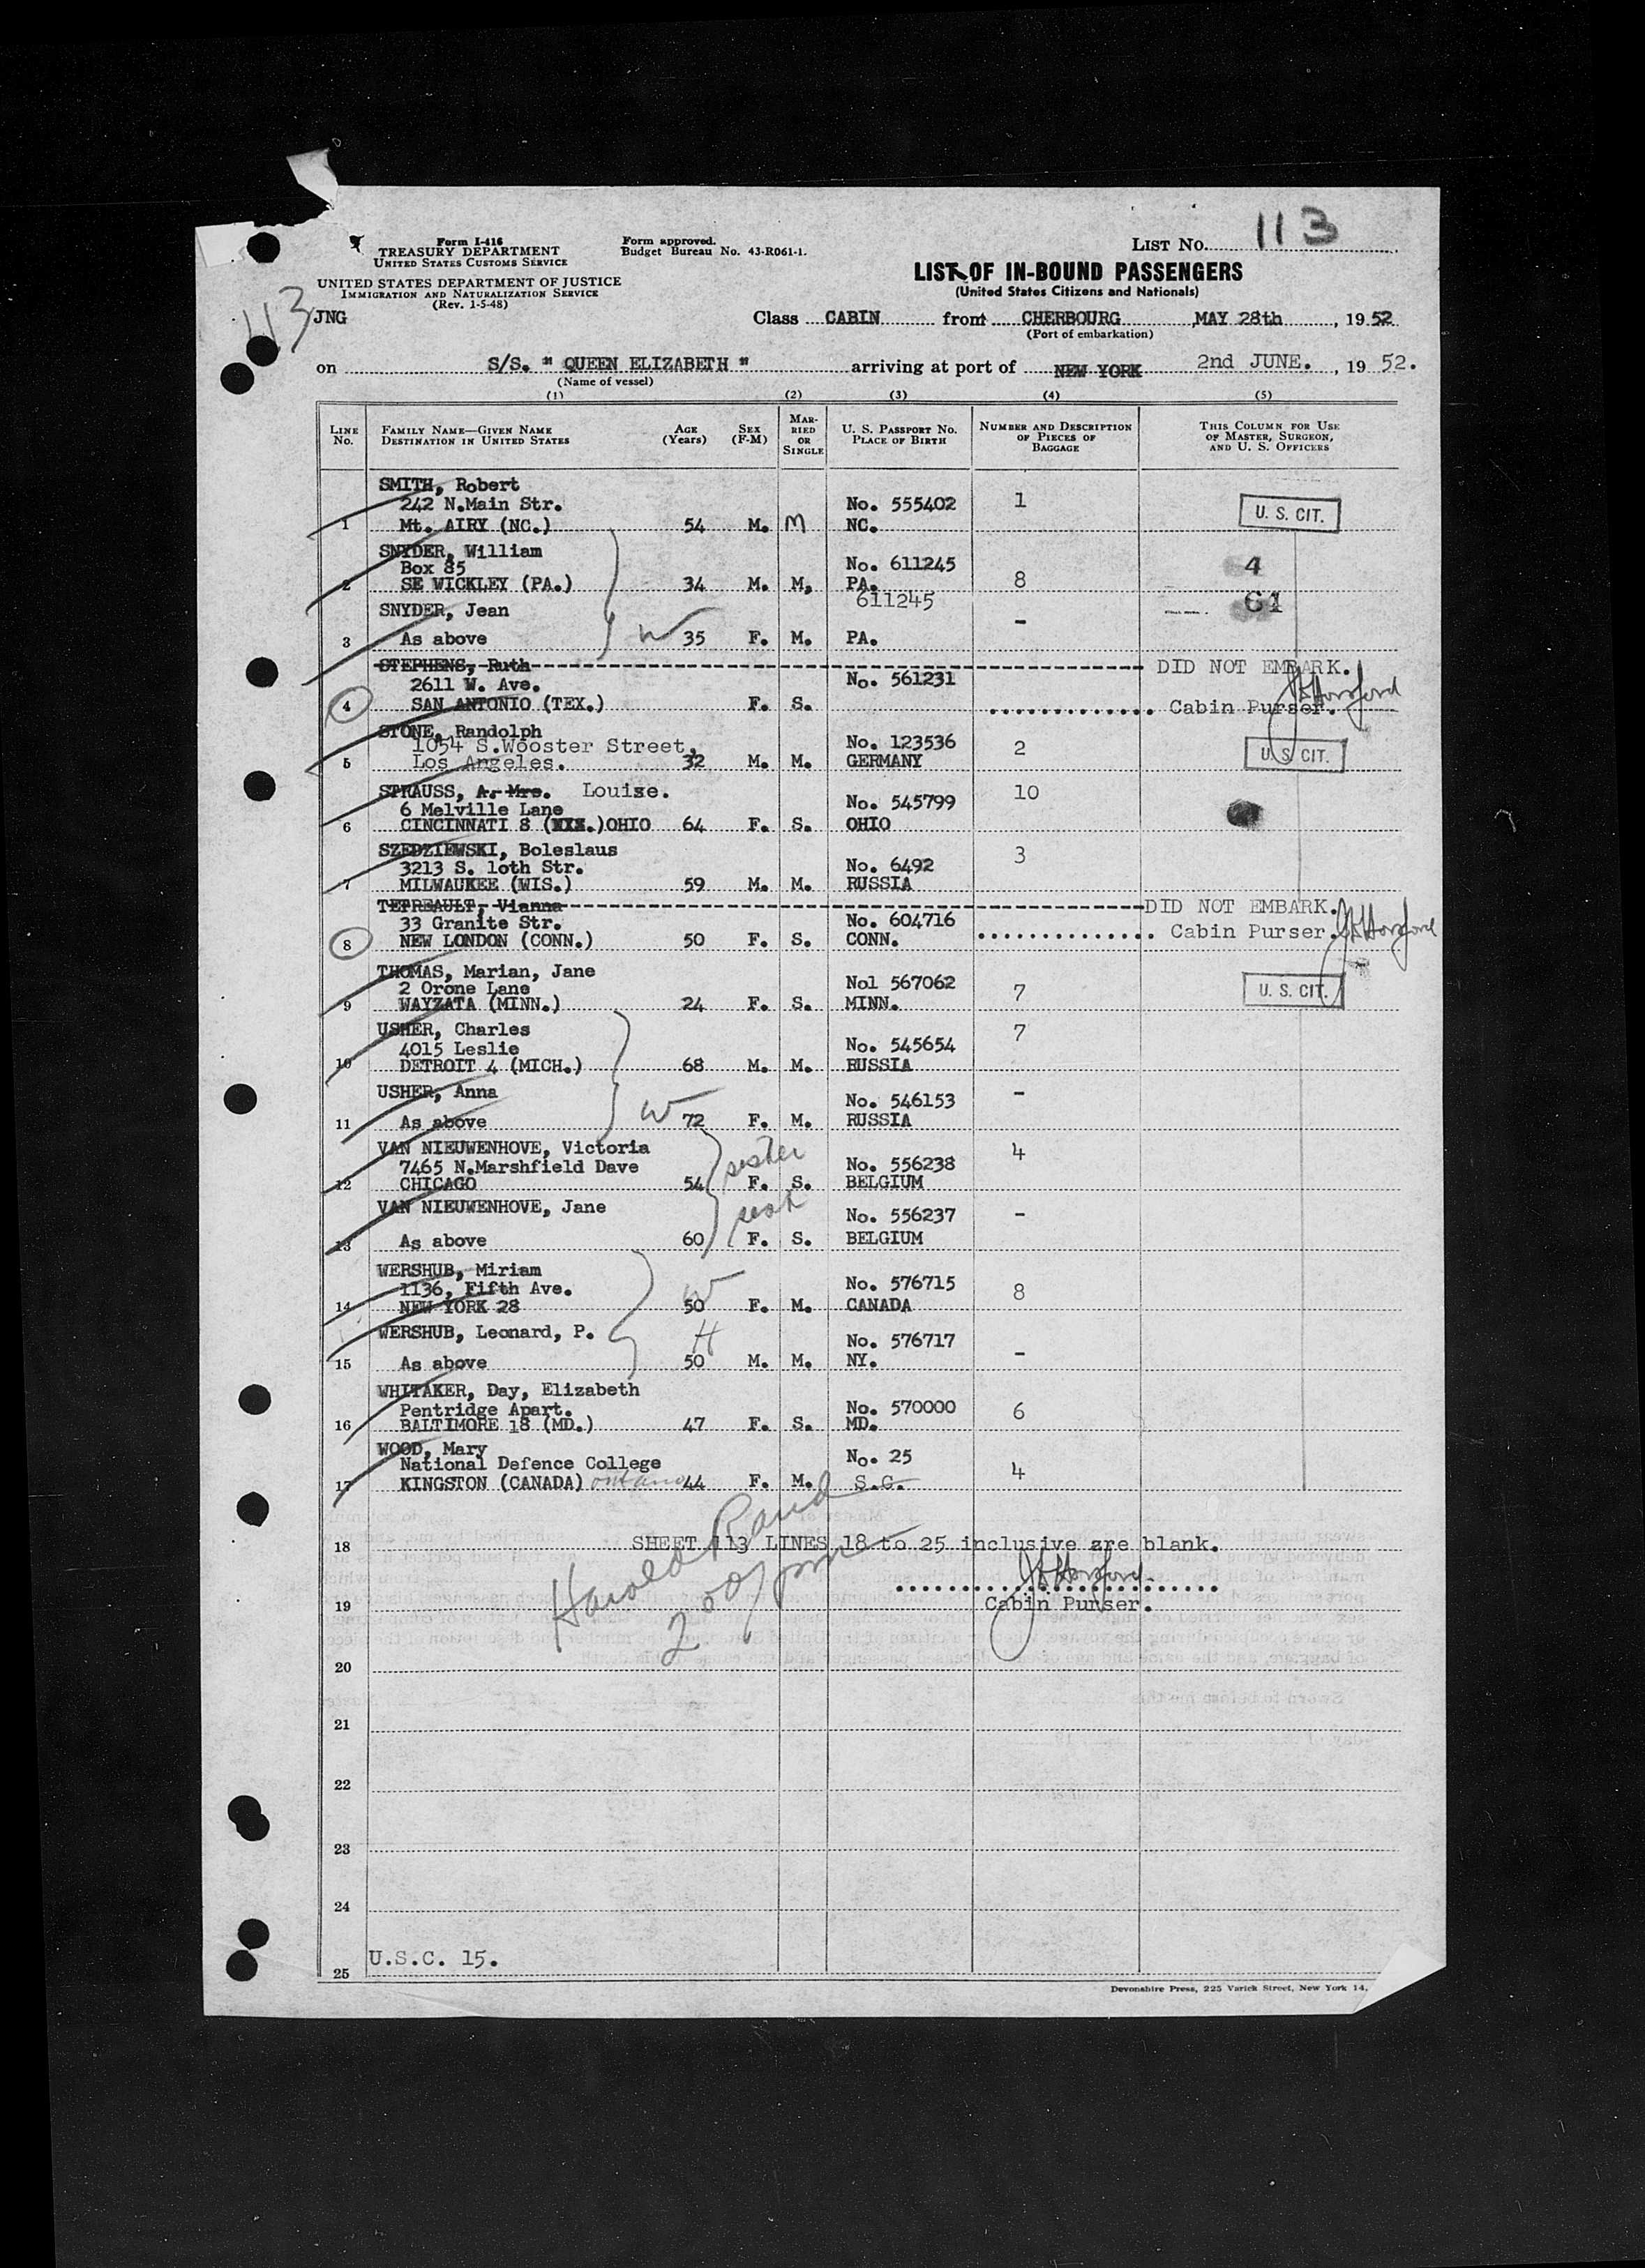 Form I-416
TREASURY DEPARTMENT
UNITED STATES CUSTOMS SERVICE
UNITED STATES DEPARTMENT OF JUSTICE
IMMIGRATION AND NATURALIZATION SERVICE
(Rev. 1-5-48)
Form approved.
Budget Bureau No. 43-R061-1.
LIST NO. 113
LIST OF IN-BOUND PASSENGERS
(United States Citizens and Nationals)
113
JNG
Class CABIN from CHERBOURG MAY 28th, 1952
(Port of embarkation)
on S/S. " QUEEN ELIZABETH " arriving at port of NEW YORK 2nd JUNE. , 19 52.
(Name of vessel)
(1) (2) (3) (4) (5)
LINE No. FAMILY NAME—GIVEN NAME DESTINATION IN UNITED STATES AGE (Years) SEX (F-M) MARRIED OR SINGLE U. S. PASSPORT NO. PLACE OF BIRTH NUMBER AND DESCRIPTION OF PIECES OF BAGGAGE THIS COLUMN FOR USE OF MASTER, SURGEON, AND U. S. OFFICERS
SMITH, Robert
242 N.Main Str. No. 555402 1 U. S. CIT.
1 Mt. AIRY (NC.) 54 M. M NC.
SNYDER, William
Box 85 No. 611245 4
2 SE WICKLEY (PA.) 34 M. M, PA. 8
SNYDER, Jean 611245 61
3 As above W 35 F. M. PA. -
STEPHENS, Ruth DID NOT EMBARK.
2611 W. Ave. No. 561231
4 SAN ANTONIO (TEX.) F. S. Cabin Purser.
STONE, Randolph
1054 S.Wooster Street, No. 123536 2 U. S. CIT.
5 Los Angeles. 32 M. M. GERMANY
STRAUSS, A. Mrs. Louise. 10
6 Melville Lane No. 545799
6 CINCINNATI 8 ( .)OHIO 64 F. S. OHIO
SZEDZIEWSKI, Boleslaus 3
3213 S. loth Str. No. 6492
7 MILWAUKEE (WIS.) 59 M. M. RUSSIA
TETREAULT, Vianna DID NOT EMBARK.
33 Granite Str. No. 604716
8 NEW LONDON (CONN.) 50 F. S. CONN. Cabin Purser.
THOMAS, Marian, Jane
2 Orone Lane Nol 567062 7 U. S. CIT.
9 WAYZATA (MINN.) 24 F. S. MINN.
USHER, Charles 7
4015 Leslie No. 545654
10 DETROIT 4 (MICH.) 68 M. M. RUSSIA
USHER, Anna No. 546153 -
11 As above W 72 F. M. RUSSIA
VAN NIEUWENHOVE, Victoria sister 4
7465 N.Marshfield Dave No. 556238
12 CHICAGO 54 F. S. BELGIUM
VAN NIEUWENHOVE, Jane No. 556237 -
13 As above 60 F. S. BELGIUM
WERSHUB, Miriam
1136, Fifth Ave. W No. 576715 8
14 NEW YORK 28 50 F. M. CANADA
WERSHUB, Leonard, P. H No. 576717
15 As above 50 M. M. NY. -
WHITAKER, Day, Elizabeth
Pentridge Apart. No. 570000 6
16 BALTIMORE 18 (MD.) 47 F. S. MD.
WOOD, Mary
National Defence College No. 25 4
17 KINGSTON (CANADA) ontario 44 F. M. S.C.
18 SHEET 113 LINES 18 to 25 inclusive are blank.
Harold Rand
2 00/pm
19 Cabin Purser.
20
21
22
23
24
25 U.S.C. 15.
Devonshire Press, 225 Varick Street, New York 14.